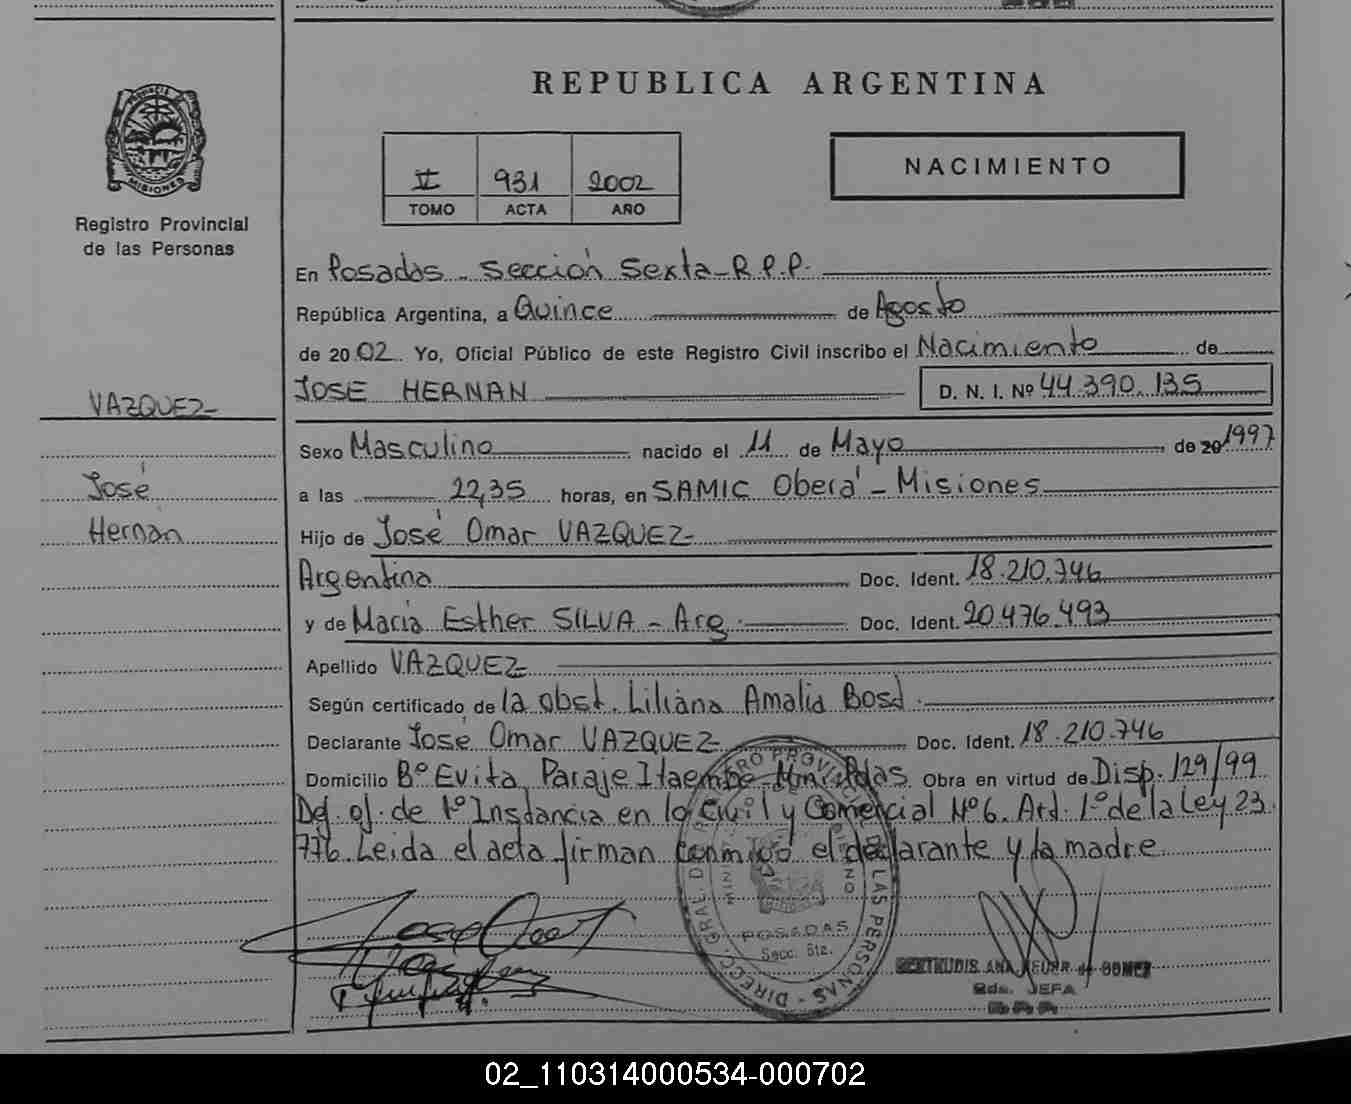 REPUBLICA ARGENTINA
PROVINCIA DE
MISIONES
Registro Provincial
de las Personas
V 931 2002
TOMO ACTA AÑO
NACIMIENTO
VAZQUEZ
José
Hernán
En Posadas - Sección Sexta - R.P.P.
República Argentina, a Quince de Agosto
de 2002 Yo, Oficial Público de este Registro Civil inscribo el Nacimiento de
JOSE HERNAN D. N. I. Nº 44.390.135
Sexo Masculino nacido el 11 de Mayo de 20 1997
a las 22,35 horas, en SAMIC Oberá - Misiones
Hijo de José Omar VAZQUEZ
Argentina Doc. Ident. 18.210.746
y de María Esther SILVA - Arg. Doc. Ident. 20.476.493
Apellido VAZQUEZ
Según certificado de la obst. Liliana Amalia
Declarante José Omar VAZQUEZ Doc. Ident. 18.210.746
Domicilio Bº Evita, Paraje Itaembe Miní. Pdas. Obra en virtud de Disp. 129/99
Def. of. de 1º Instancia en lo Civil y Comercial Nº 6. Art. 1º de la Ley 23.
776. Leida el acta firman conmigo el declarante y la madre
DIRECC. GRAL. DEL REGISTRO PROVINCIAL DE LAS PERSONAS
POSADAS
Secc. 6ta.
GERTRUDIS ANA de GOMEZ
2da. JEFA
02_110314000534-000702